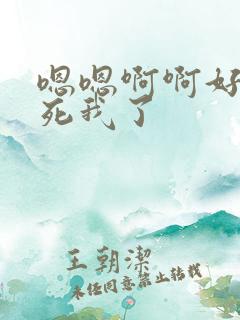 嗯嗯啊啊好
死我了
王朝潔
未经同意禁止转载